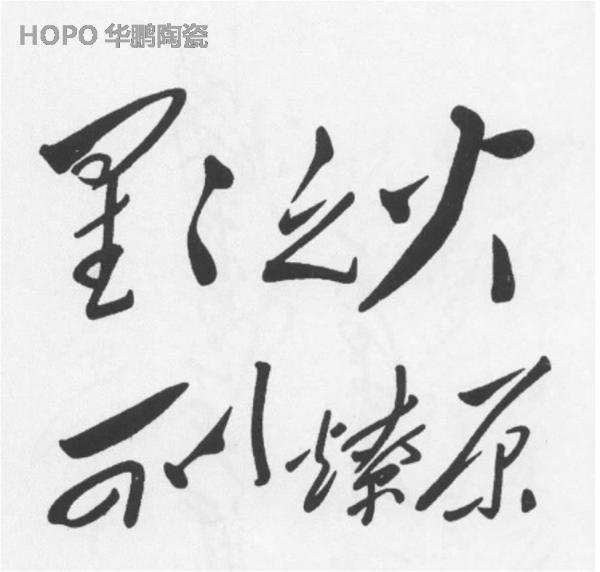 HOPO 华鹏陶瓷
星星之火
可以燎原